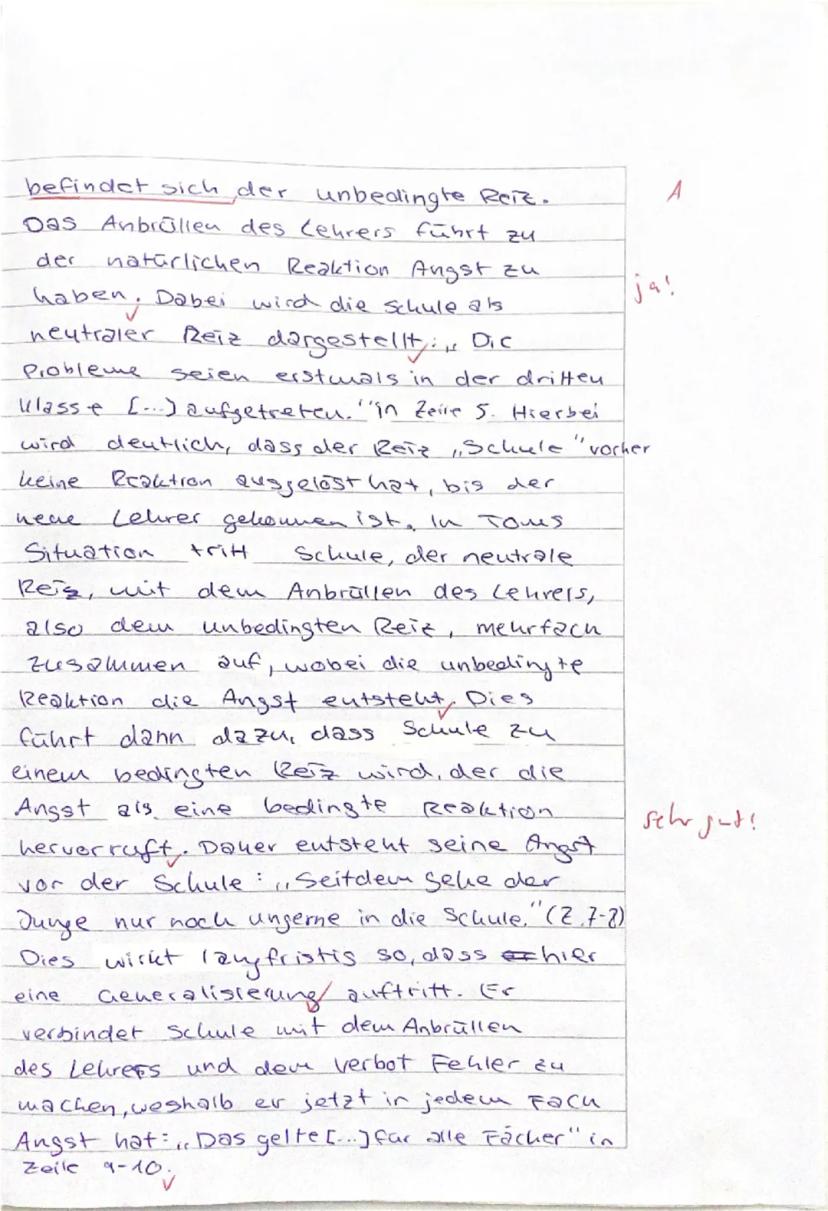 befindet sich der unbedingte Reiz. A
Das Anbrüllen des Lehrers führt zu
der natürlichen Reaktion Angst zu
haben. Dabei wird die Schule als ja!
neutraler Reiz dargestellt: „Die
Probleme seien erstmals in der dritten
Klasse [...] aufgetreten." in Zeile 5. Hierbei
wird deutlich, dass der Reiz „Schule" vorher
keine Reaktion ausgelöst hat, bis der
neue Lehrer gekommen ist. In Toms
Situation tritt Schule, der neutrale
Reiz, mit dem Anbrüllen des Lehrers,
also dem unbedingten Reiz, mehrfach
zusammen auf, wobei die unbedingte
Reaktion die Angst entsteht. Dies
führt dann dazu, dass Schule zu
einem bedingten Reiz wird, der die
Angst als eine bedingte Reaktion sehr gut!
hervorruft. Daher entsteht seine Angst
vor der Schule: „Seitdem gehe der
Junge nur noch ungerne in die Schule." (Z. 7-8)
Dies wirkt langfristis so, dass hier
eine Generalisierung auftritt. Er
verbindet Schule mit dem Anbrüllen
des Lehrers und dem Verbot Fehler zu
machen, weshalb er jetzt in jedem Fach
Angst hat: „Das gelte [...] für alle Fächer" in
Zeile 9-10.